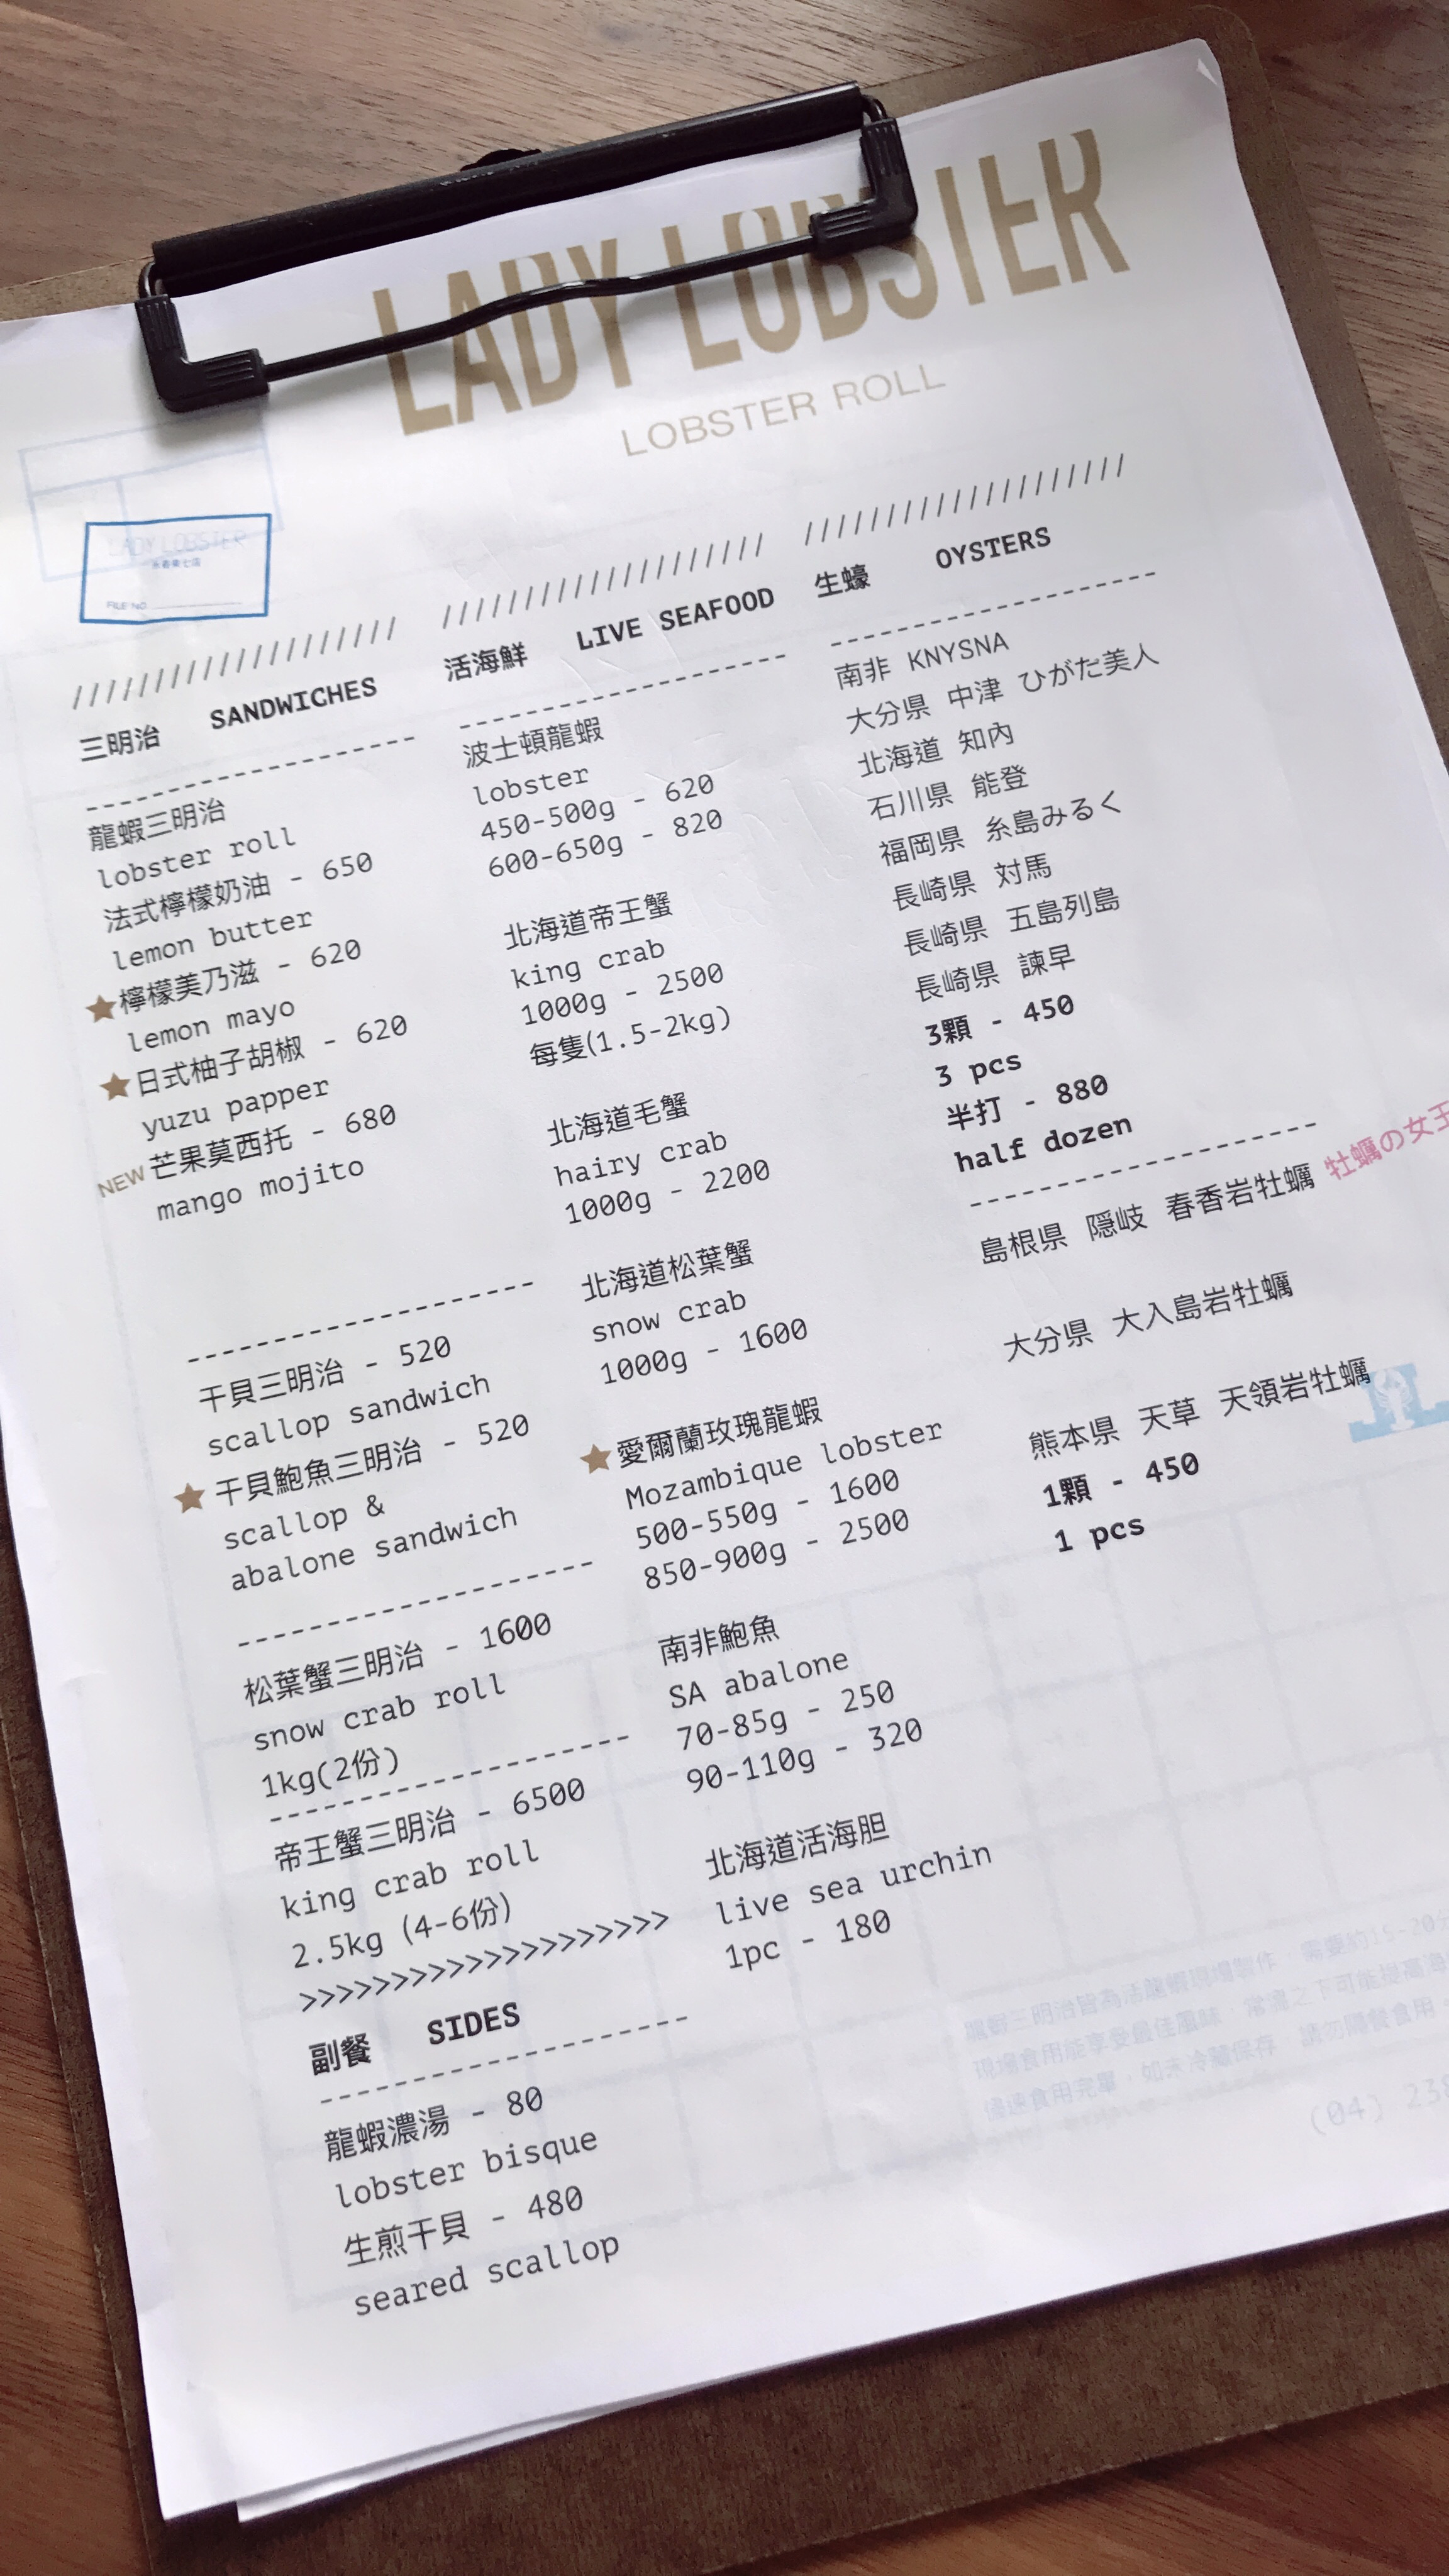 LADY LOBSTER
LOBSTER ROLL
LADY LOBSTER
FILE NO
三明治 SANDWICHES
龍蝦三明治
lobster roll
法式檸檬奶油 - 650
lemon butter
檸檬美乃滋 - 620
lemon mayo
日式柚子胡椒 - 620
yuzu papper
NEW 芒果莫西托 - 680
mango mojito
干貝三明治 - 520
scallop sandwich
干貝鮑魚三明治 - 520
scallop &
abalone sandwich
松葉蟹三明治 - 1600
snow crab roll
1kg(2份)
帝王蟹三明治 - 6500
king crab roll
2.5kg (4-6份)
>>>>>>>>>>>>>>>>>>>>
副餐 SIDES
龍蝦濃湯 - 80
lobster bisque
生煎干貝 - 480
seared scallop
活海鮮 LIVE SEAFOOD
波士頓龍蝦
lobster
450-500g - 620
600-650g - 820
北海道帝王蟹
king crab
1000g - 2500
每隻(1.5-2kg)
北海道毛蟹
hairy crab
1000g - 2200
北海道松葉蟹
snow crab
1000g - 1600
愛爾蘭玫瑰龍蝦
Mozambique lobster
500-550g - 1600
850-900g - 2500
南非鮑魚
SA abalone
70-85g - 250
90-110g - 320
北海道活海胆
live sea urchin
1pc - 180
生蠔 OYSTERS
南非 KNYSNA
大分県 中津 ひがだ美人
北海道 知內
石川県 能登
福岡県 糸島みるく
長崎県 対馬
長崎県 五島列島
長崎県 諫早
3顆 - 450
3 pcs
半打 - 880
half dozen
島根県 隠岐 春香岩牡蠣 牡蠣の女王
大分県 大入島岩牡蠣
熊本県 天草 天領岩牡蠣
1顆 - 450
1 pcs